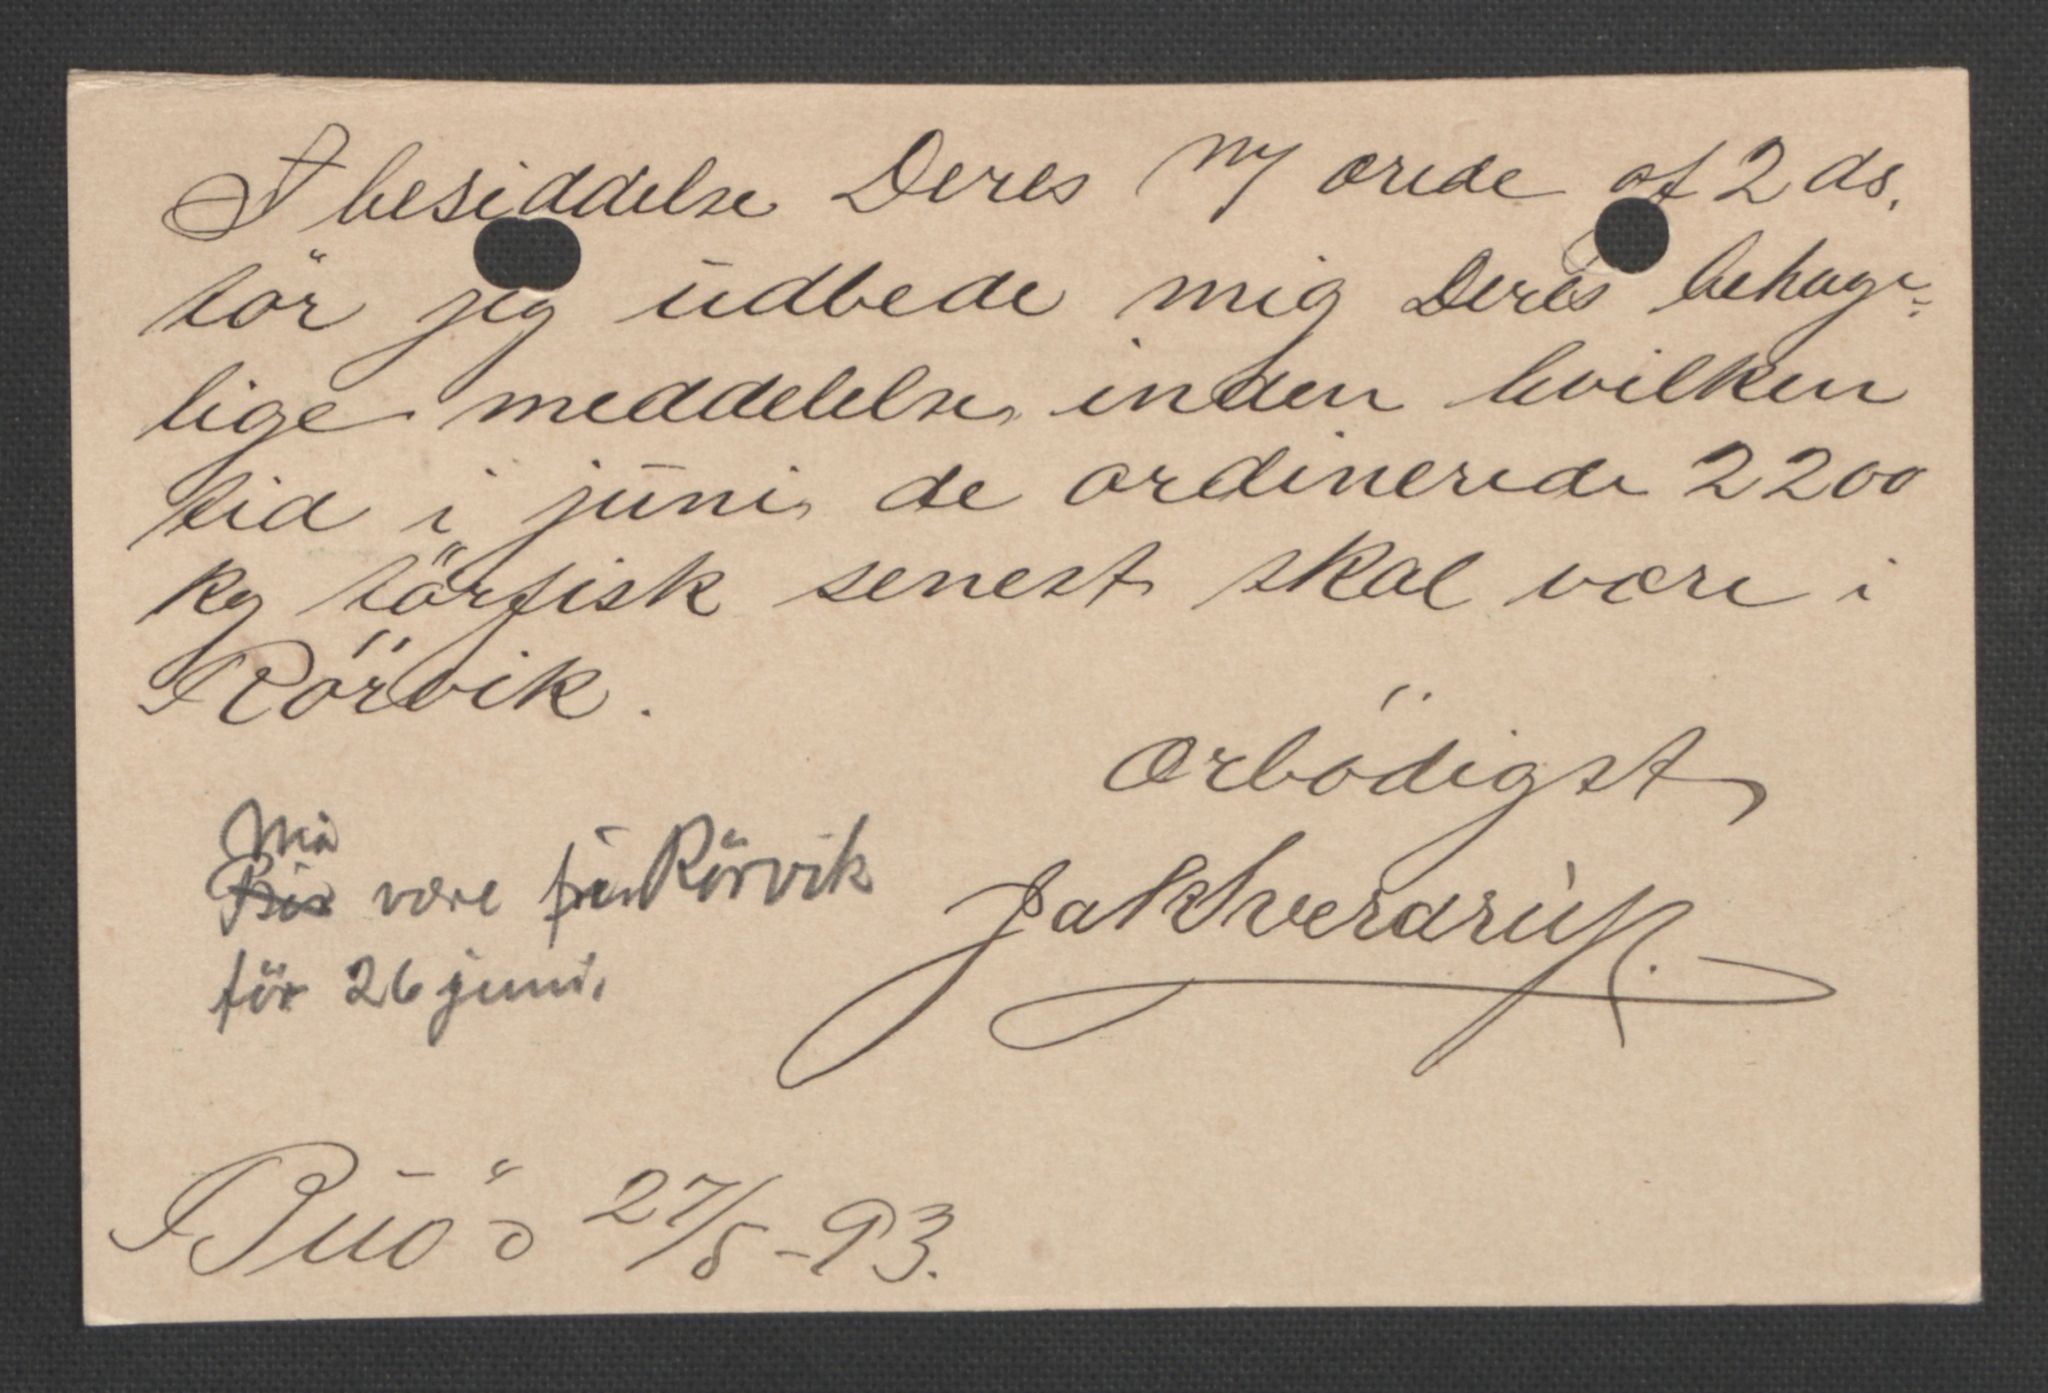 I besiddelse Deres ny ærede af 2 ds.
tör jeg udbede mig Deres behage-
lige meddelelse, inden hvilken
tid i juni, de ordinerede 2200
kg törfisk senest skal være i
Rörvik.
Ærbödigst
Jak Sverdrup.
Må
være Rörvik
för 26 juni.
Buö 27/5 - 93.